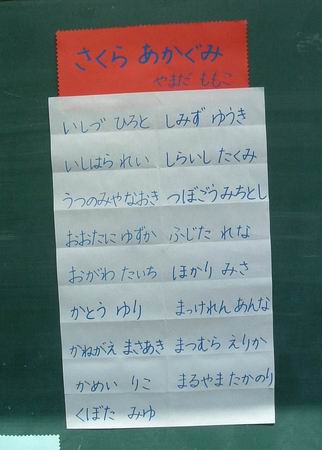 さくら あかぐみ
やまだ ももこ
いしづ ひろと しみず ゆうき
いしはら れい しらいし たくみ
うつのみや なおき つぼごう みちとし
おおたに ゆずか ふじた れな
おがわ たいち ほかり みさ
かとう ゆり まっけれん あんな
かねがえ まさあき まつむら えりか
かめい りこ まるやま たかのり
くぼた みゆ